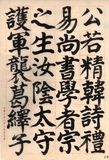 公若精韓詩禮
易尚書學者宗
之生汝陰太守
護軍襲葛繹子